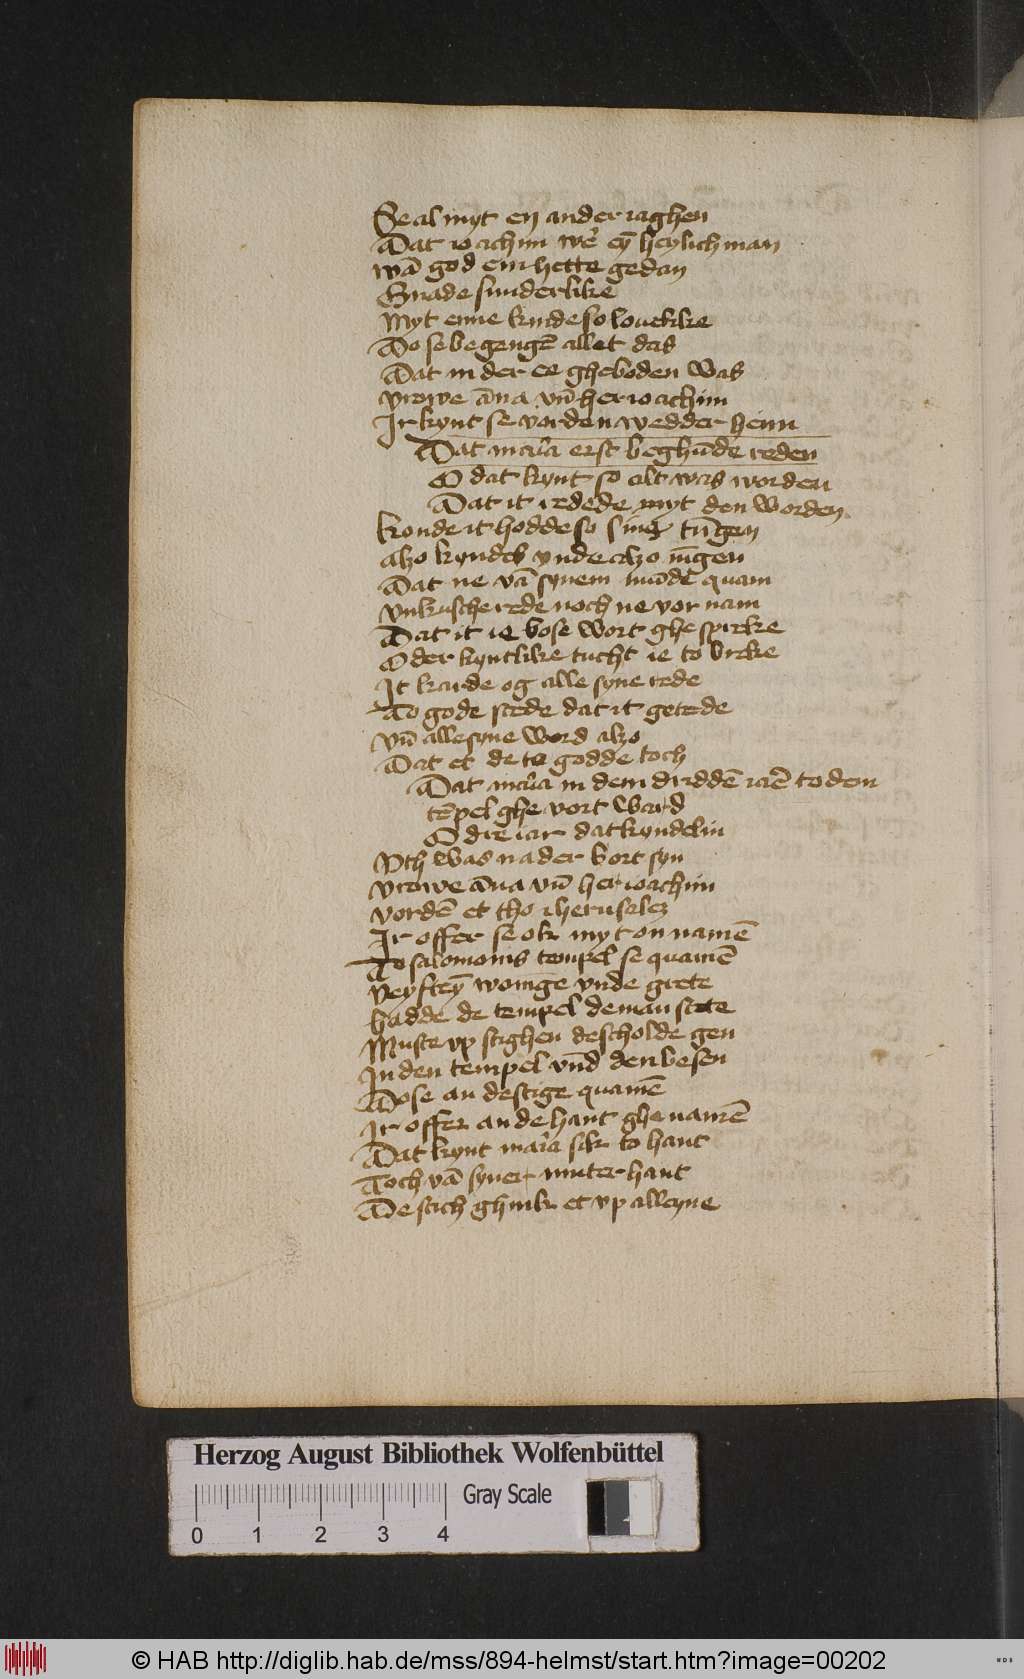 Se al myt en ander iaghen
Dat ioachim we͛ ey̅ heylich man
wā god em hette gedan
Gnade sunderlike
Myt eme kinde so louelike
Do se begengē allet das
Dat in der ee gheboden was
vrowe āna vn̄ her ioachim
Ir kynt se vorden wedder henn
Dat maria erst beghūde reden
O dat kynt so alt was worden
Dat it redede myt den worden
konde it hodde so siner tūgen
alzo kyndes vnde alzo iūgen
Dat ne vā synem mūde quam
vnkusche rede noch ne vor nam
Dat it ie bose wort ghe spreke
Oder kyntlike tucht ie to breke
It karde og alle syne rede
To gode stede dat it getede
vn̄ alle syne word alzo
Dat et de te godde toch
Dat maria in dem driddē iarē to dem
tēpel ghe vort ward
O dre iar dat kyndelin
Vth was na der bort syn
vrowe āna vn̄ her ioachim
vordē et tho iherusalez
Ir offer se ok myt on namē
To salomonis tempel se quamē
veyftey̅ wonīge vnde grete
hadde de tempel de man stete
Muste vp stighen de scholde gen
In den tempel vn̄d den besen
Do se an de stige quamē
Ir offer an de hant ghe namē
Dat kynt maria sik to hant
Toch vā syner muter hant
De stich ghink et vp alleyne
Herzog August Bibliothek Wolfenbüttel
Gray Scale
0 1 2 3 4
© HAB http://diglib.hab.de/mss/894-helmst/start.htm?image=00202